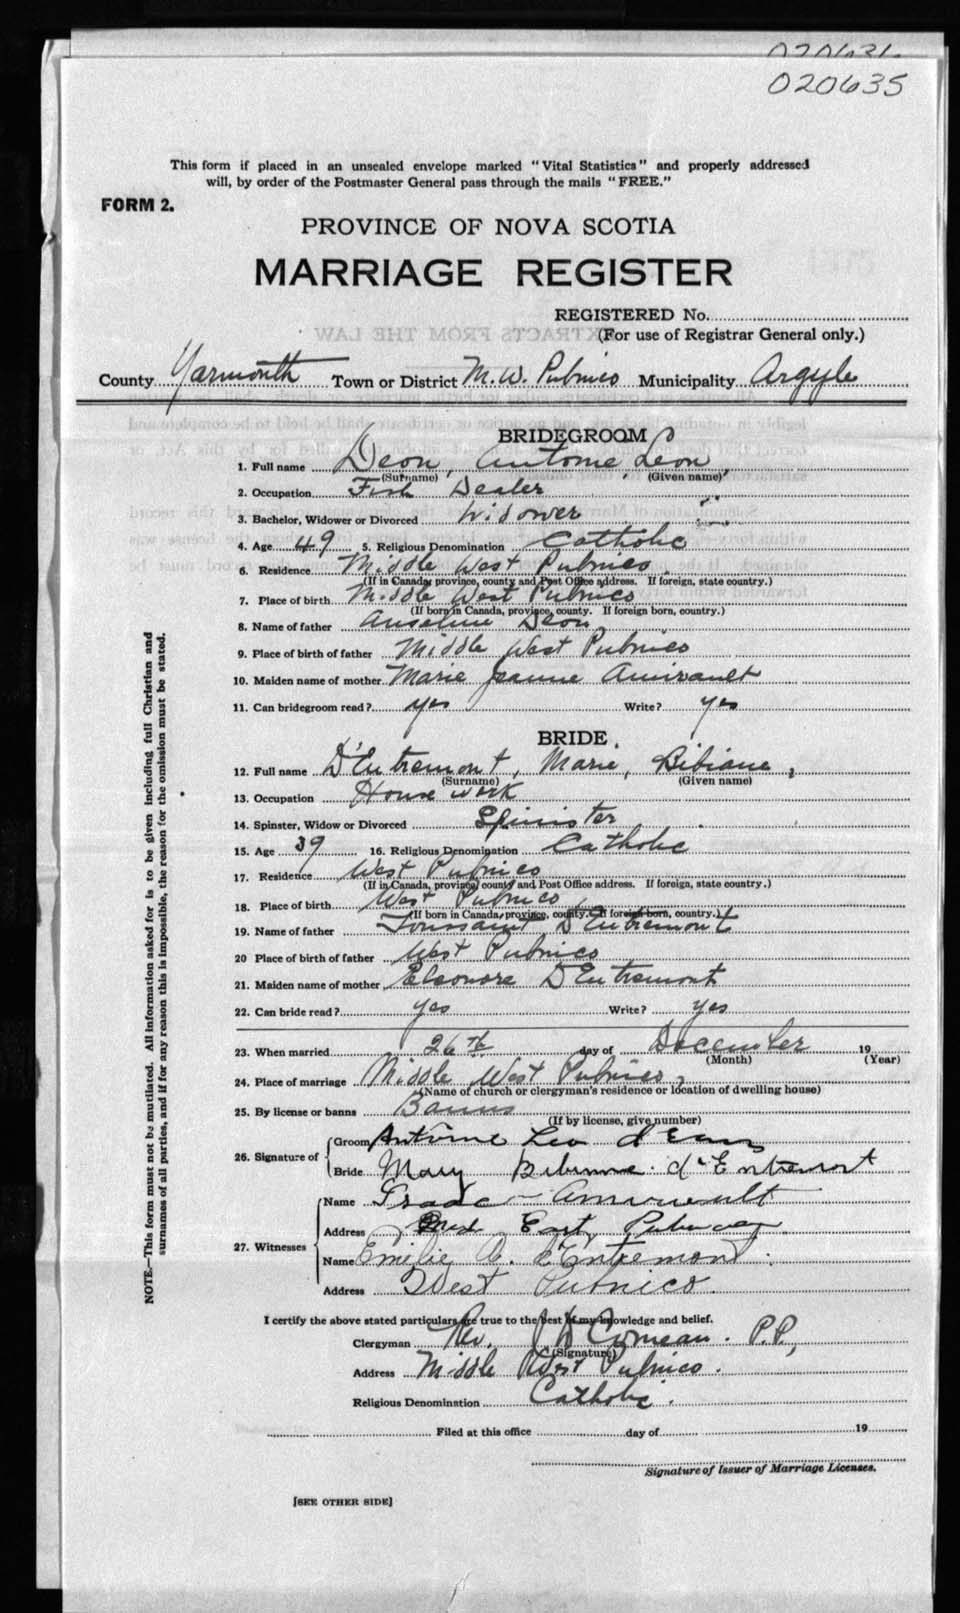 020636
020635
This form if placed in an unsealed envelope marked "Vital Statistics" and properly addressed
will, by order of the Postmaster General pass through the mails "FREE."
FORM 2.
PROVINCE OF NOVA SCOTIA
MARRIAGE REGISTER
REGISTERED No.
(For use of Registrar General only.)
EXTRACTS FROM THE LAW
County Yarmouth Town or District M. W. Pubnico Municipality Argyle
BRIDEGROOM
1. Full name Deon, Antoine, Leon,
(Surname) (Given name)
2. Occupation Fish Dealer
3. Bachelor, Widower or Divorced Widower
4. Age 49 5. Religious Denomination Catholic
6. Residence Middle West Pubnico
(If in Canada, province, county and Post Office address. If foreign, state country.)
7. Place of birth Middle West Pubnico
(If born in Canada, province, county. If foreign born, country.)
8. Name of father Anselme Deon,
9. Place of birth of father Middle West Pubnico
10. Maiden name of mother Marie Jeanne Amirault
11. Can bridegroom read? yes Write? yes
BRIDE.
12. Full name D'Entremont, Marie, Bibiane,
(Surname) (Given name)
13. Occupation House work
14. Spinster, Widow or Divorced Spinister
15. Age 39 16. Religious Denomination Catholic
17. Residence West Pubnico
(If in Canada, province, county and Post Office address. If foreign, state country.)
18. Place of birth West Pubnico
(If born in Canada, province, county. If foreign born, country.)
19. Name of father Toussaint D'Entremont
20 Place of birth of father West Pubnico
21. Maiden name of mother Eleonore D'Entremont
22. Can bride read? yes Write? yes
23. When married 26th day of December 19
(Month) (Year)
24. Place of marriage Middle West Pubnico,
(Name of church or clergyman's residence or location of dwelling house)
25. By license or banns Banns
(If by license, give number)
26. Signature of
Groom Antoine Leo d'Eon
Bride Mary Bibianne d'Entremont
27. Witnesses
Name Isaac Amirault
Address Mid East Pubnico
Name Emilie A. d'Entremont.
Address West Pubnico.
I certify the above stated particulars are true to the best of my knowledge and belief.
Clergyman Rev. Comeau. P.P,
(Signature)
Address Middle West Pubnico.
Religious Denomination Catholic.
Filed at this office day of 19
Signature of Issuer of Marriage Licenses.
[SEE OTHER SIDE]
NOTE.—This form must not be mutilated. All information asked for is to be given including full Christian and
surnames of all parties, and if for any reason this is impossible, the reason for the omission must be stated.